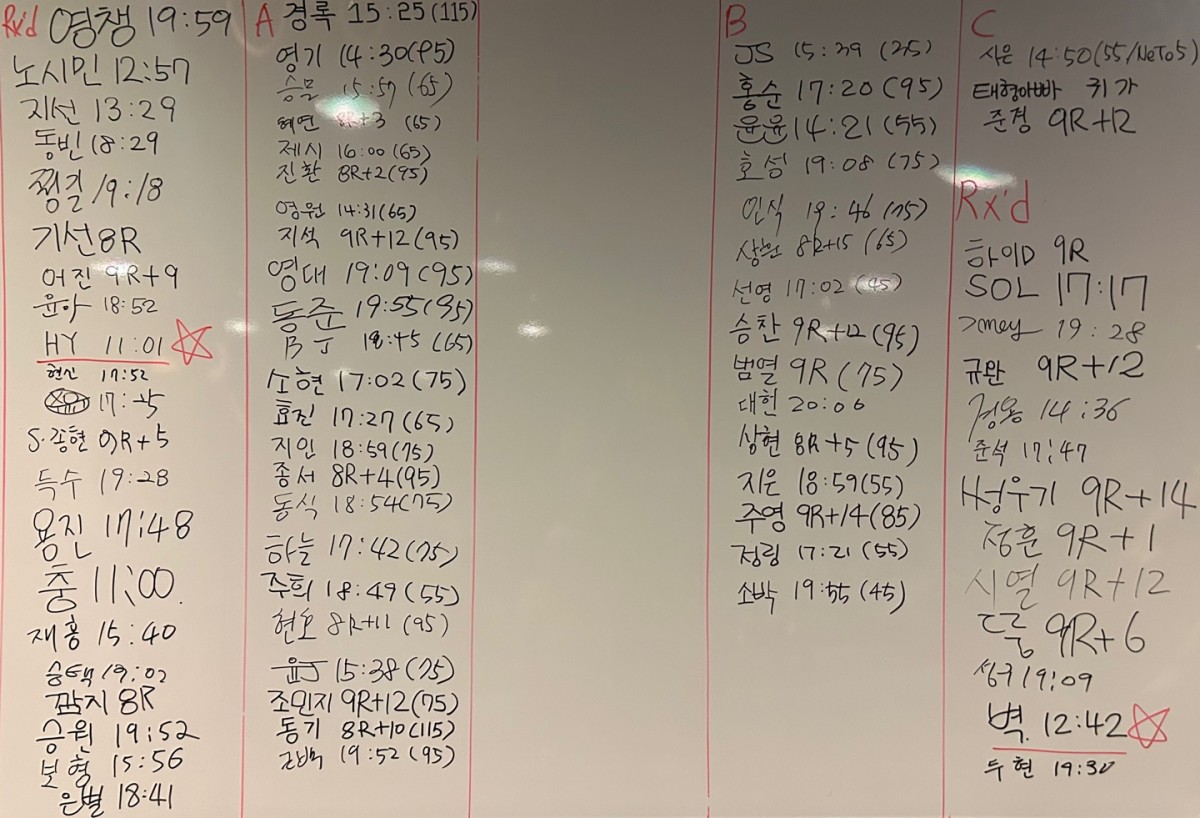 Rx'd
영챙 19:59
노시민 12:57
지선 13:29
동빈 18:29
찡긋 19:18
기선 8R
어진 9R+9
윤아 18:52
HY 11:01
현신 17:52
17:
S.종현 9R+5
득수 19:28
용진 17:48
충 11:00
재홍 15:40
승택 19:02
깜지 8R
승원 19:52
보형 15:56
은별 18:41
A
경록 15:25 (115)
영기 14:30 (95)
승모 15:57 (65)
혜연 8R+3 (65)
제시 16:00 (65)
진환 8R+2 (95)
영원 14:31 (65)
지석 9R+12 (95)
영대 19:09 (95)
동준 19:55 (95)
18:45 (65)
소현 17:02 (75)
효진 17:27 (65)
지인 18:59 (75)
종서 8R+4 (95)
동식 18:54 (75)
하늘 17:42 (75)
주희 18:49 (55)
현호 8R+11 (95)
윤J 15:38 (75)
조민지 9R+12 (75)
동기 8R+10 (115)
근백 19:52 (95)
B
JS 15:39 (35)
홍순 17:20 (95)
윤윤 14:21 (55)
호성 19:08 (75)
인식 19:46 (75)
상헌 8R+15 (65)
선영 17:02 (45)
승찬 9R+12 (95)
범열 9R (75)
대헌 20:06
상현 8R+5 (95)
지은 18:59 (55)
주영 9R+14 (85)
정링 17:21 (55)
소박 19:55 (45)
C
사은 14:50 (55/NoTo5)
태형아빠 귀가
준경 9R+12
Rx'd
하이D 9R
SOL 17:17
19:28
규완 9R+12
정용 14:36
준석 17:47
9R+14
정훈 9R+1
시열 9R+12
9R+6
성구 19:09
벽. 12:42
두현 19:30